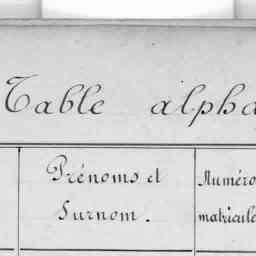 Table alpha
Prénoms et
Surnom.
Numéro
matricule